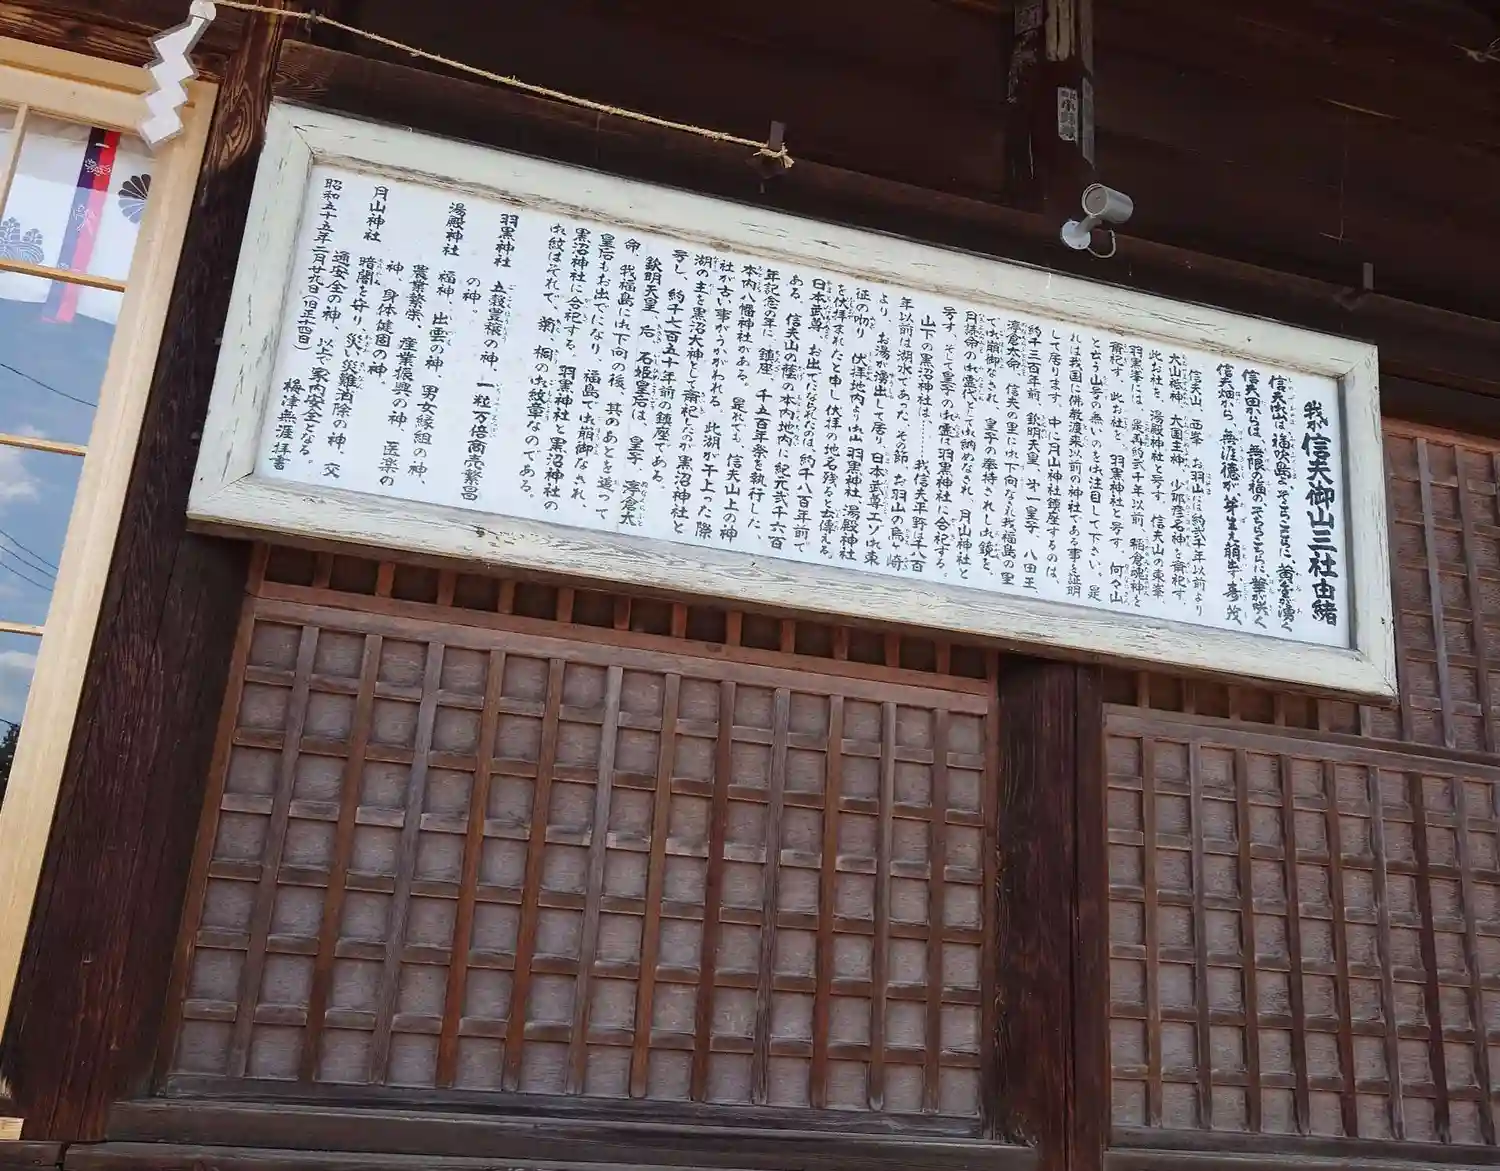 我が信夫御山三社由緒
信夫山、西峯 お羽山には約弐千年以前より
大山祗神、大国主神、少那彦名神を斎祀す。
此お社を、湯殿神社と号す。信夫山の東峯、
羽黒峯には、是再約弐千年以前、稲倉魂神を
斎祀す。此お社を、羽黒神社と号す。何々山
と云う山号の無いのを御注目して下さい。是
れは我国に佛教渡来以前の神社である事を証明
して居ります。中に月山神社鎮座するのは、
約千三百年前、欽明天皇、第一皇子、八田王、
渟倉太命、信夫の里に御下向なされ我福島の里
で御崩御なされ、皇子の奉持されし御鏡を、
月読命の御霊代として御納めなされ、月山神社と
号す。そして皇子の御霊は羽黒神社に合祀する。
山下の黒沼神社は、……我信夫平野は千八百
年以前は湖水であった。その節、お羽山の烏ヶ崎
より、お湯が湧出して居り日本武尊エゾ御東
征の砌り 伏拝地内より御山羽黒神社、湯殿神社
を伏拝まれたと申し伏拝の地名残ると云傳える。
日本武尊、お出でになられたのは約千八百年前で
ある。信夫山の蔭の本内地内に紀元弐千六百
年記念の年に、鎮座、千五百年祭を執行した、
本内八幡神社がある。是れでも、信夫山上の神
社が古い事がうかがわれる。此湖が干上った際
湖の主を黒沼大神として斎祀したのが黒沼神社と
号し、約千七百五十年前の鎮座である。
欽明天皇、后、石姫皇后は、皇子、渟倉太
命、我福島に御下向の後、其のあとを追って
皇后もお出でになり、福島で御崩御なされ、
黒沼神社に合祀する。羽黒神社と黒沼神社の
御紋はそれで、菊、桐の御紋章なのである。
羽黒神社 五穀豊穣の神、一粒万倍商売繁昌
の神。
湯殿神社 福神、出雲の神、男女縁組の神、
農業繁栄、産業振興の神 医楽の
神、身体健固の神。
月山神社 暗闇を守り、災い災難消除の神、交
通安全の神、以て家内安全となる。
昭和五十五年二月廿九日(旧正十四日) 橋津無涯拝書